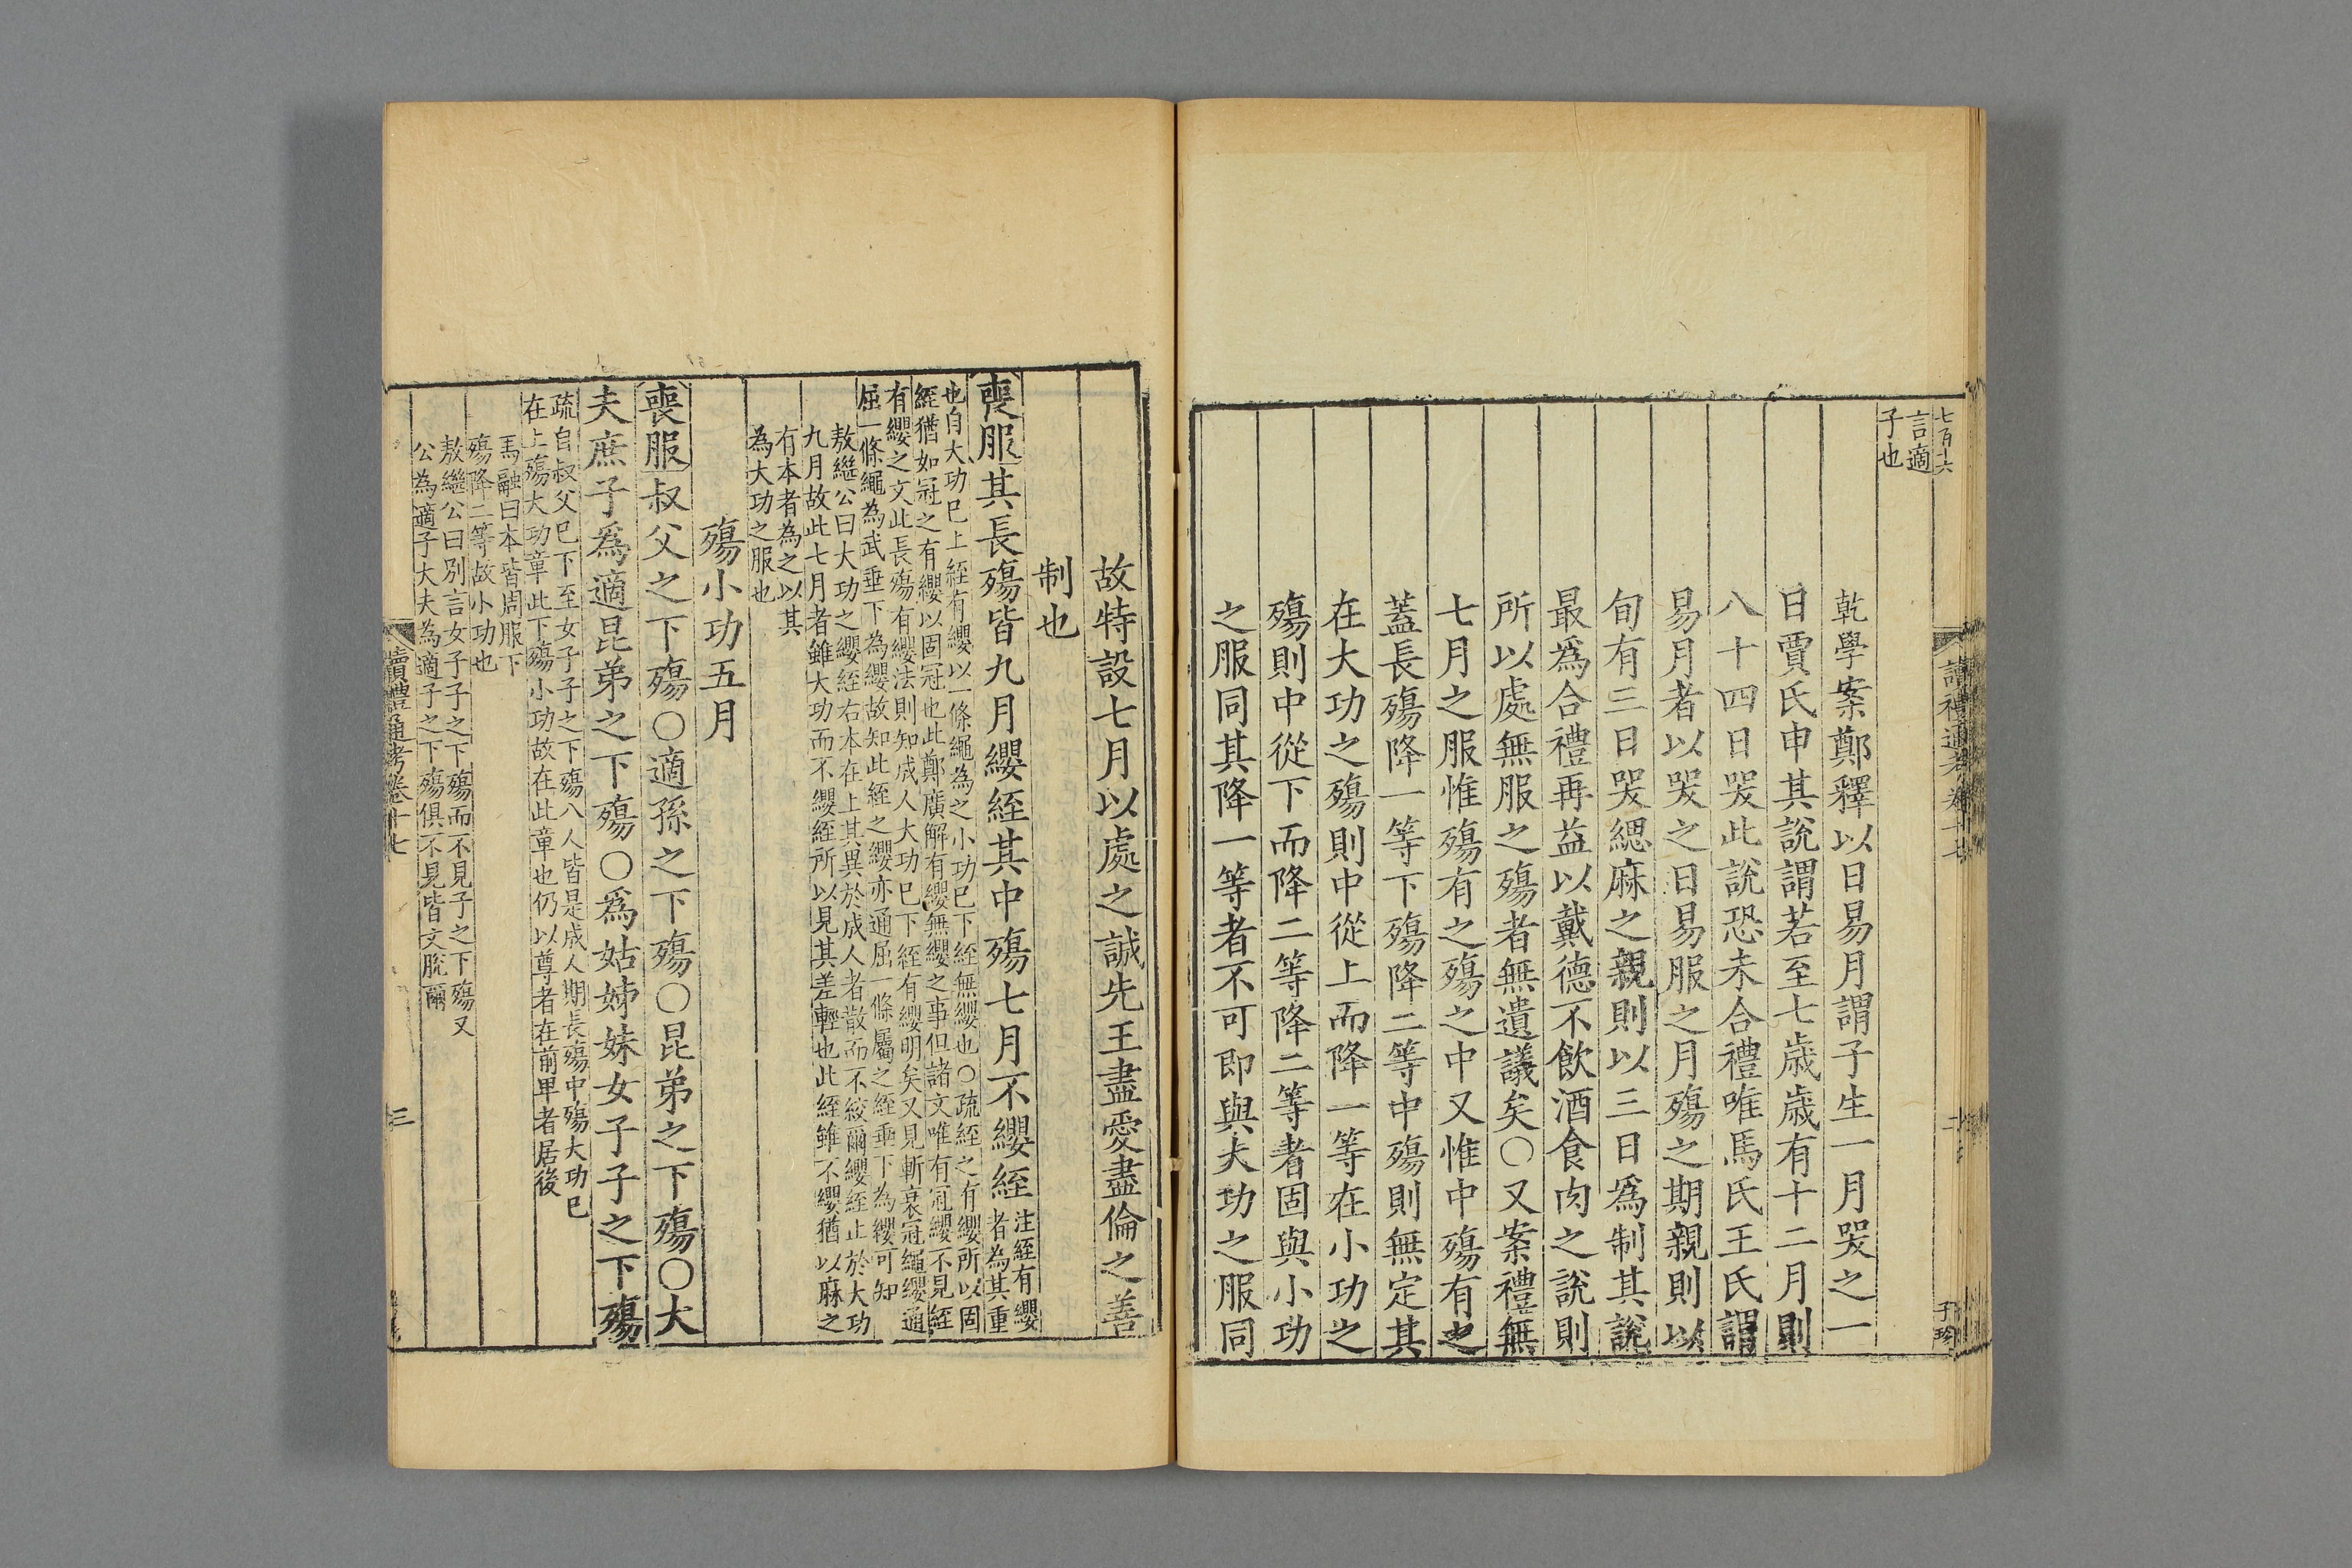 七百十六
讀禮通考卷十七
二
子珍
言適
子也
乾學案鄭釋以日易月謂子生一月哭之一
日賈氏申其說謂若至七歲歲有十二月則
八十四日哭此說恐未合禮唯馬氏王氏謂
易月者以哭之日易服之月殤之期親則以
旬有三日哭緦麻之親則以三日爲制其說
最爲合禮再益以戴德不飲酒食肉之說則
所以處無服之殤者無遺議矣〇又案禮無
七月之服惟殤有之殤之中又惟中殤有之
蓋長殤降一等下殤降二等中殤則無定其
在大功之殤則中從上而降一等在小功之
殤則中從下而降二等降二等者固與小功
之服同其降一等者不可即與大功之服同
故特設七月以處之誠先王盡愛盡倫之善
制也
喪服其長殤皆九月纓絰其中殤七月不纓絰
注絰有纓
者為其重
也自大功已上絰有纓以一條繩為之小功已下絰無纓也〇疏絰之有纓所以固
絰猶如冠之有纓以固冠也此鄭廣解有纓無纓之事但諸文唯有冠纓不見絰
有纓之文此長殤有纓法則知成人大功已下絰有纓明矣又見斬衰冠繩纓通
屈一條繩為武垂下為纓故知此絰之纓亦通屈一條屬之絰垂下為纓可知
敖繼公曰大功之纓絰右本在上其異於成人者散而不絞爾纓絰止於大功
九月故此七月者雖大功而不纓絰所以見其差輕也此絰雖不纓猶以麻之
有本者為之以其
為大功之服也
殤小功五月
喪服叔父之下殤〇適孫之下殤〇昆弟之下殤〇大
夫庶子爲適昆弟之下殤〇爲姑姊妹女子子之下殤
疏自叔父已下至女子子之下殤八人皆是成人期長殤中殤大功已
在上殤大功章此下殤小功故在此章也仍以尊者在前卑者居後
馬融曰本皆周服下
殤降二等故小功也
敖繼公曰別言女子子之下殤而不見子之下殤又
公為適子大夫為適子之下殤俱不見皆文脫爾
讀禮通考卷十七
三